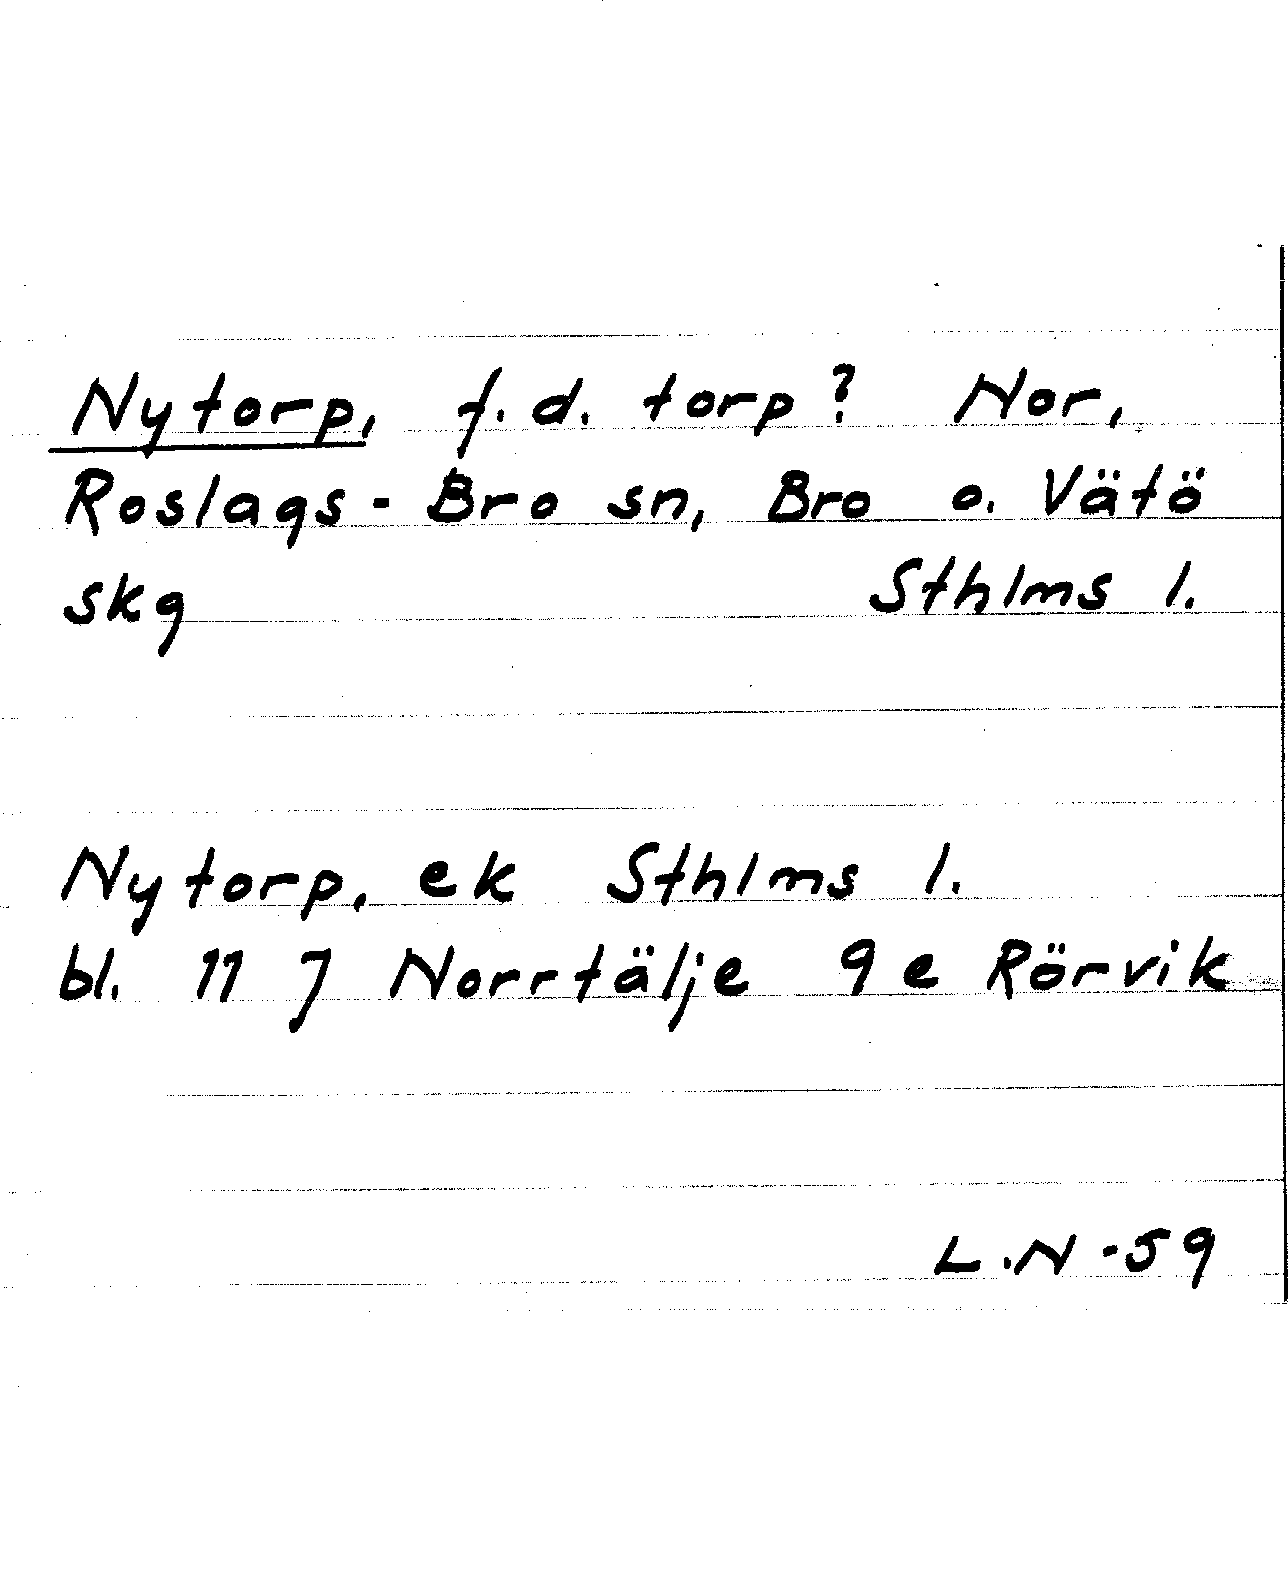 Nytorp, f.d. torp? Nor,
Roslags-Bro sn, Bro o. Vätö
skg Sthlms l.
Nytorp, ek Sthlms l.
bl. 11 J Norrtälje 9 e Rörvik
L.N -59